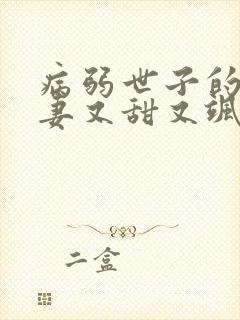 病弱世子的
妻又甜又飒
二盒